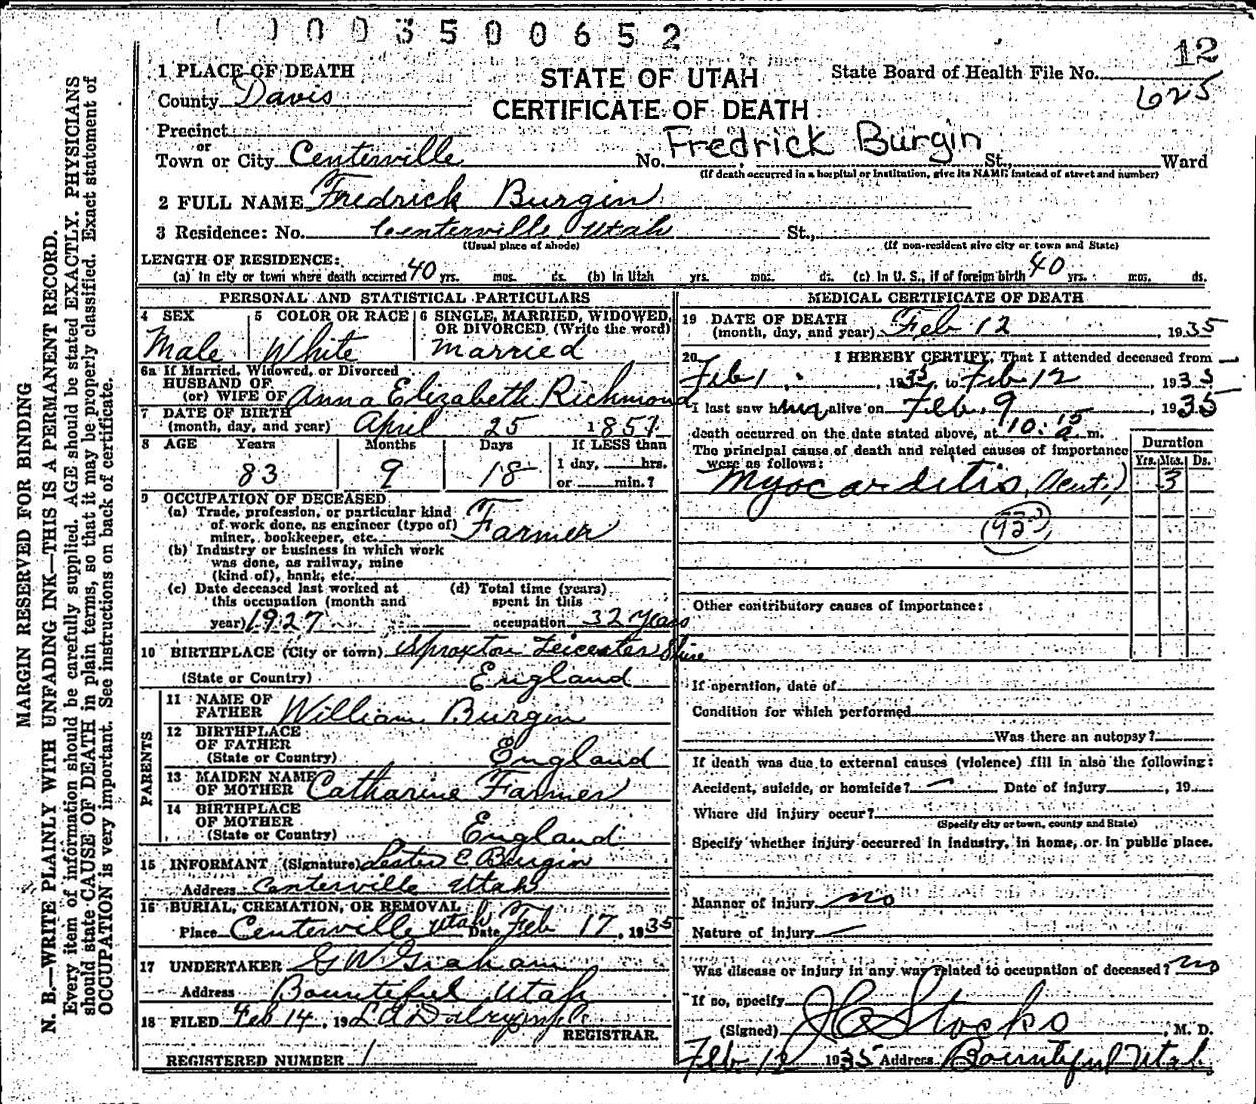 0 0 3 5 0 0 6 5 2
MARGIN RESERVED FOR BINDING
N. B.—WRITE PLAINLY WITH UNFADING INK—THIS IS A PERMANENT RECORD.
Every item of information should be carefully supplied. AGE should be stated EXACTLY. PHYSICIANS
should state CAUSE OF DEATH in plain terms, so that it may be properly classified. Exact statement of
OCCUPATION is very important. See instructions on back of certificate.
STATE OF UTAH
CERTIFICATE OF DEATH
State Board of Health File No. 12
625
1 PLACE OF DEATH
County Davis
Precinct
or
Town or City Centerville No. Fredrick Burgin St., Ward
(If death occurred in a hospital or institution, give its NAME instead of street and number)
2 FULL NAME Fredrick Burgin
3 Residence: No. Centerville, Utah St.,
(Usual place of abode) (If non-resident give city or town and State)
LENGTH OF RESIDENCE:
(a) In city or town where death occurred 40 yrs. mos. ds. (b) In Utah yrs. mos. ds. (c) In U. S., if of foreign birth 40 yrs. mos. ds.
PERSONAL AND STATISTICAL PARTICULARS
4 SEX 5 COLOR OR RACE 6 SINGLE, MARRIED, WIDOWED, OR DIVORCED (Write the word)
Male White Married
6a If Married, Widowed, or Divorced
HUSBAND OF
(or) WIFE OF Anna Elizabeth Richmond
7 DATE OF BIRTH
(month, day, and year) April 25 1851
8 AGE Years Months Days If LESS than
83 9 18 1 day, hrs.
or min.?
9 OCCUPATION OF DECEASED
(a) Trade, profession, or particular kind
of work done, as engineer (type of)
miner, bookkeeper, etc. Farmer
(b) Industry or business in which work
was done, as railway, mine
(kind of), bank, etc.
(c) Date deceased last worked at
this occupation (month and
year) 1927
(d) Total time (years)
spent in this
occupation 32 Years
10 BIRTHPLACE (City or town) Sproxton Leicester Shire
(State or Country) England
PARENTS
11 NAME OF
FATHER William Burgin
12 BIRTHPLACE
OF FATHER
(State or Country) England
13 MAIDEN NAME
OF MOTHER Catharine Farmer
14 BIRTHPLACE
OF MOTHER
(State or Country) England
15 INFORMANT (Signature) Lester E Burgin
Address Centerville Utah
16 BURIAL, CREMATION, OR REMOVAL
Place Centerville Utah Date Feb 17, 1935
17 UNDERTAKER G W Graham
Address Bountiful Utah
18 FILED Feb 14, 19 L A Dalrymple
REGISTRAR.
REGISTERED NUMBER 1
MEDICAL CERTIFICATE OF DEATH
19 DATE OF DEATH
(month, day, and year) Feb 12 1935
20 I HEREBY CERTIFY, That I attended deceased from
Feb 1, 1935, to Feb 12, 1935
I last saw him alive on Feb. 9, 1935
death occurred on the date stated above, at 10:15 a m.
The principal cause of death and related causes of importance
were as follows:
Duration
Yrs. Mos. Ds.
Myocarditis, (acute) 3
Other contributory causes of importance:
If operation, date of
Condition for which performed
Was there an autopsy?
If death was due to external causes (violence) fill in also the following:
Accident, suicide, or homicide? — Date of injury , 19
Where did injury occur?
(Specify city or town, county and State)
Specify whether injury occurred in industry, in home, or in public place.
Manner of injury no
Nature of injury —
Was disease or injury in any way related to occupation of deceased? no
If so, specify
(Signed) J C Stocks, M. D.
Feb 12 1935 Address Bountiful Utah